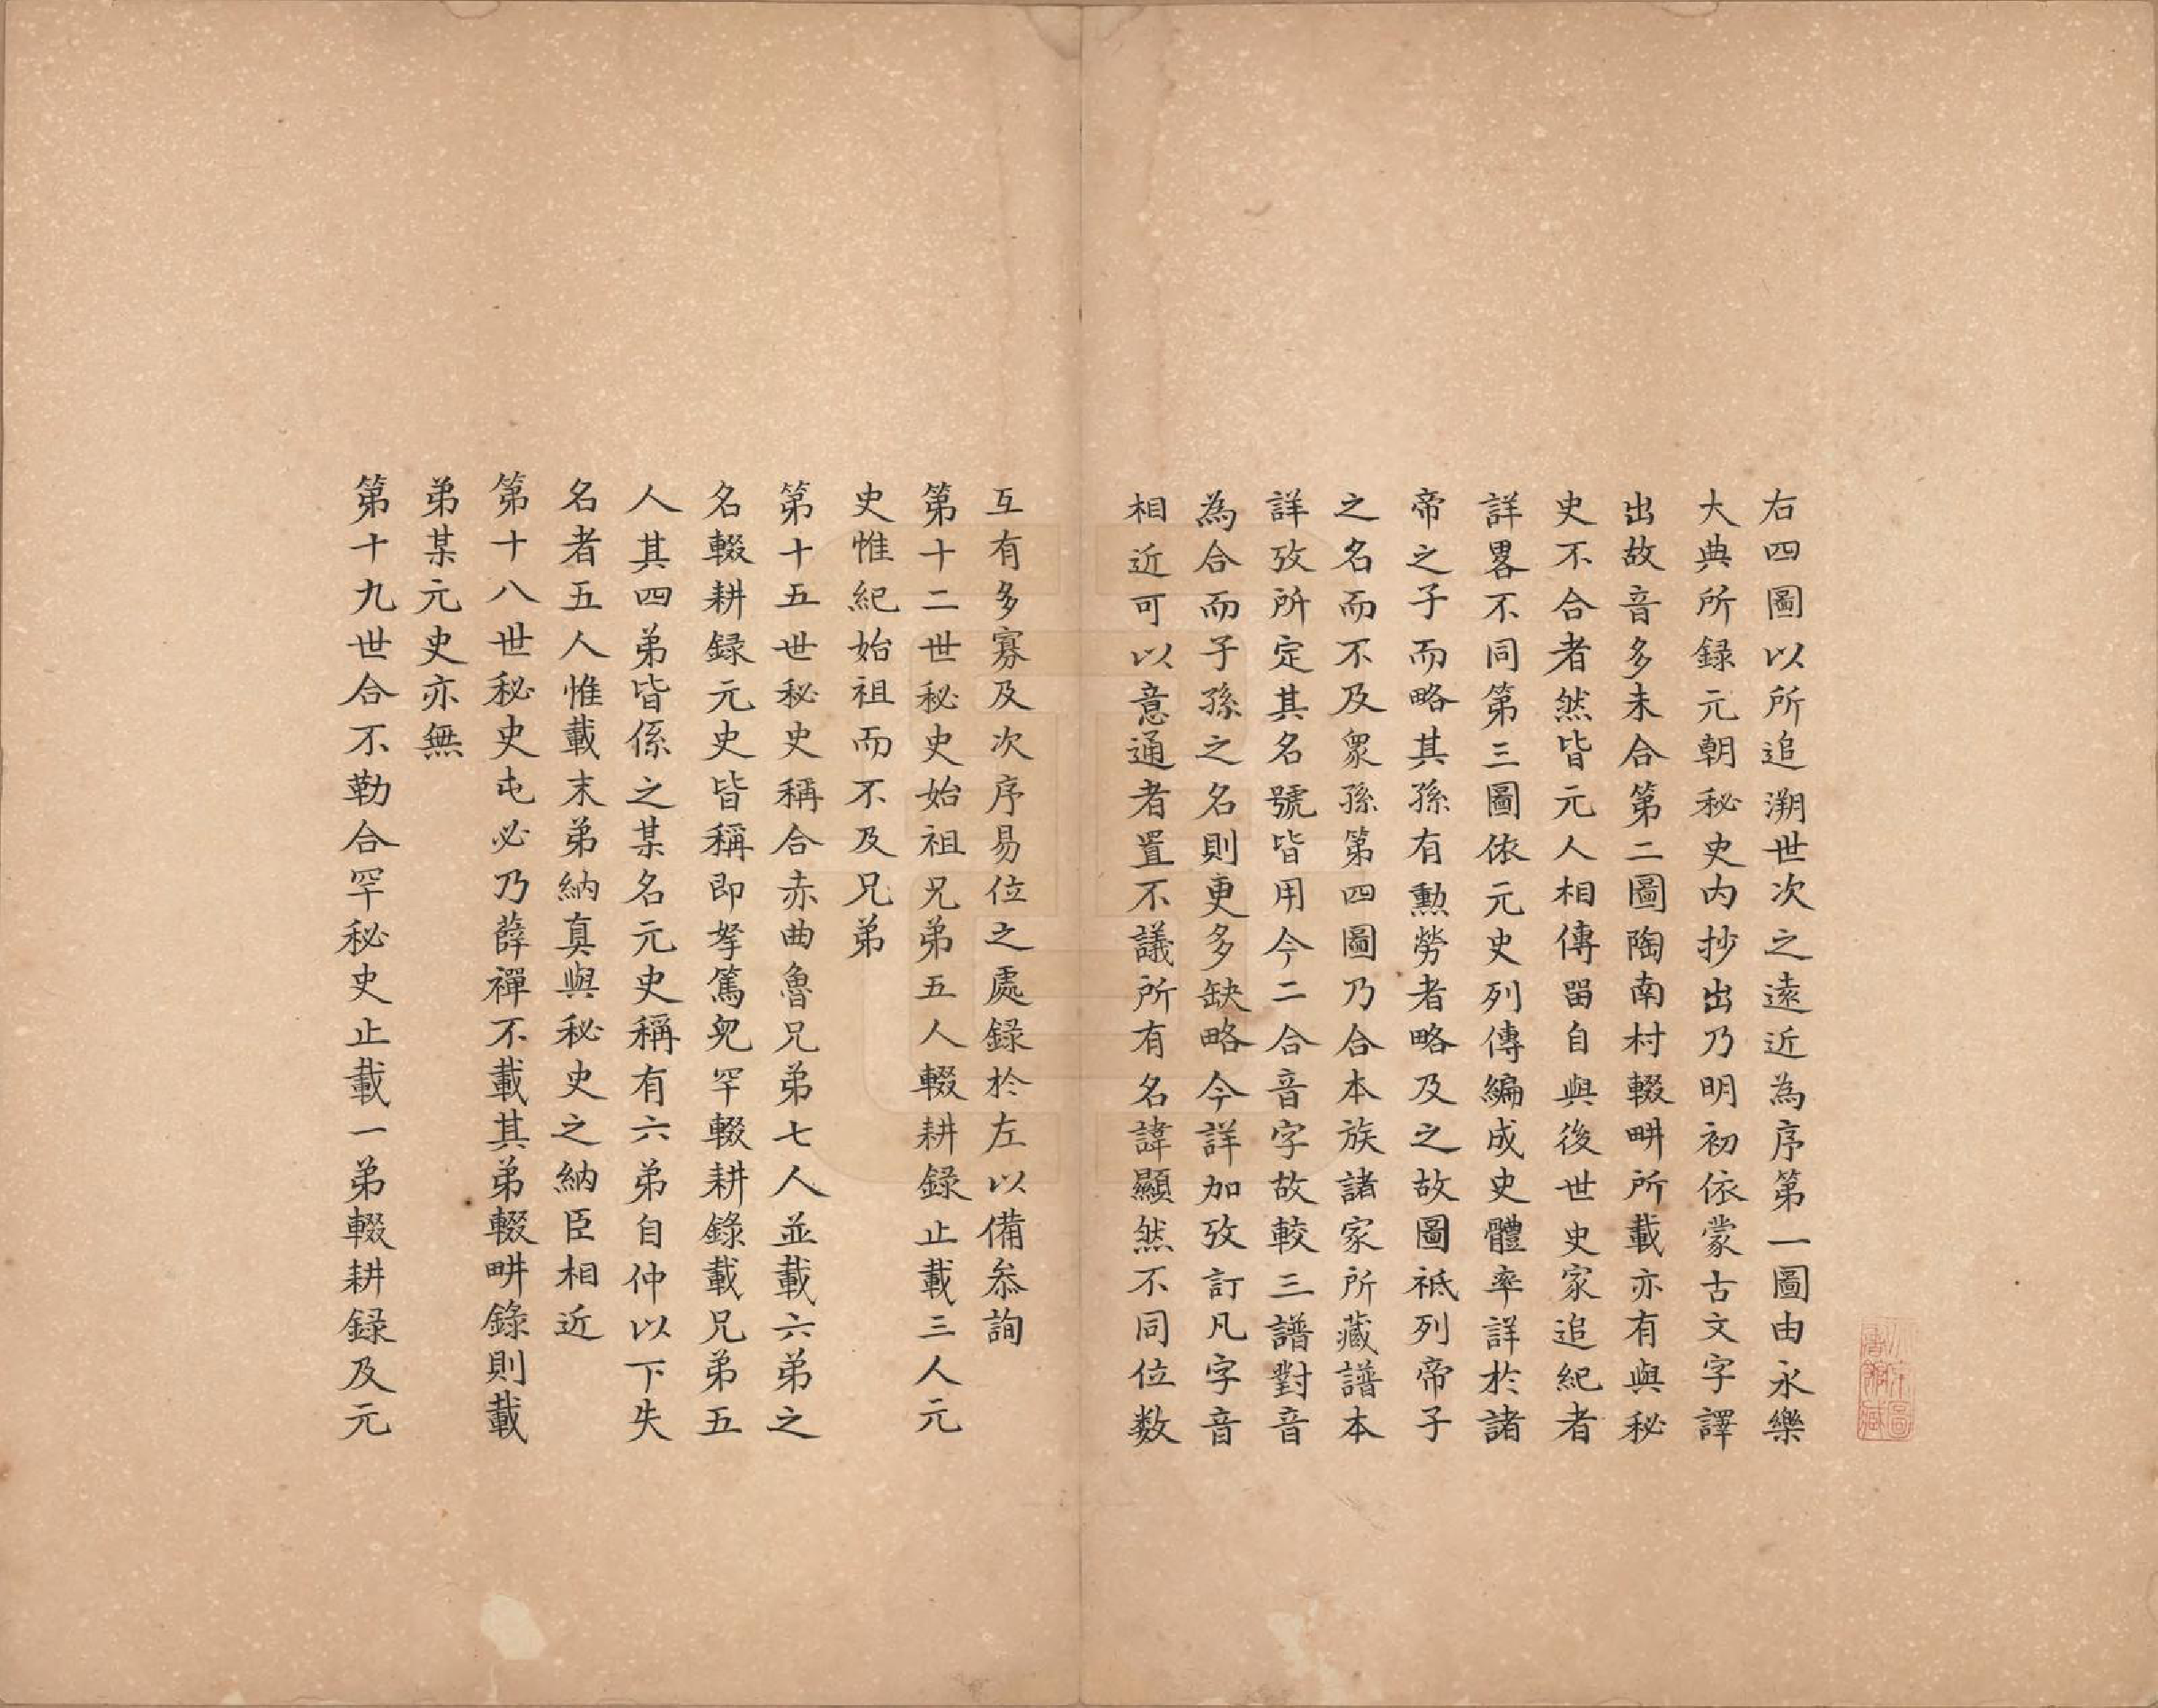 右四圖以所追溯世次之遠近為序第一圖由永樂
大典所録元朝秘史内抄出乃明初依蒙古文字譯
出故音多未合第二圖陶南村輟畊所載亦有與秘
史不合者然皆元人相傳畱自與後世史家追紀者
詳畧不同第三圖依元史列傳編成史體率詳於諸
帝之子而略其孫有勳勞者略及之故圖祗列帝子
之名而不及衆孫第四圖乃合本族諸家所藏譜本
詳攷所定其名號皆用今二合音字故較三譜對音
為合而子孫之名則更多缺略今詳加攷訂凡字音
相近可以意通者置不議所有名諱顯然不同位数
互有多寡及次序易位之處録於左以備叅詢
第十二世秘史始祖兄弟五人輟耕録止載三人元
史惟紀始祖而不及兄弟
第十五世秘史稱合赤曲魯兄弟七人並載六弟之
名輟耕録元史皆稱即孥篤兒罕輟耕錄載兄弟五
人其四弟皆係之某名元史稱有六弟自仲以下失
名者五人惟載末弟納真與秘史之納臣相近
第十八世秘史屯必乃薛禪不載其弟輟畊錄則載
弟某元史亦無
第十九世合不勒合罕秘史止載一弟輟耕録及元